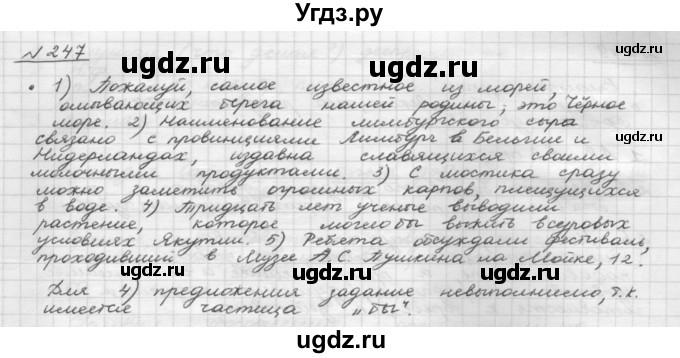 Угдз.ру
№ 247
• 1) Пожалуй, самое известное из морей,
омывающих берега нашей родины, это Чёрное
море. 2) Наименование лимбургского сыра
связано с провинциями Лимбург в Бельгии и
Нидерландах, издавна славящихся своими
молочными продуктами. 3) С мостика сразу
можно заметить огромных карпов, плещущихся
в воде. 4) Тридцать лет ученые выводили
растение, которое могло бы выжить в суровых
условиях Якутии. 5) Ребята обсуждали фестиваль,
проходивший в Музее А.С. Пушкина на Мойке, 12.
Для 4) предложения задание невыполнимо, т.к.
имеется частица „бы".
ugdz.ru
ugdz.ru ugdz.ru
ugdz.ru
ugdz.ru ugdz.ru
ugdz.ru
ugdz.ru ugdz.ru
ugdz.ru